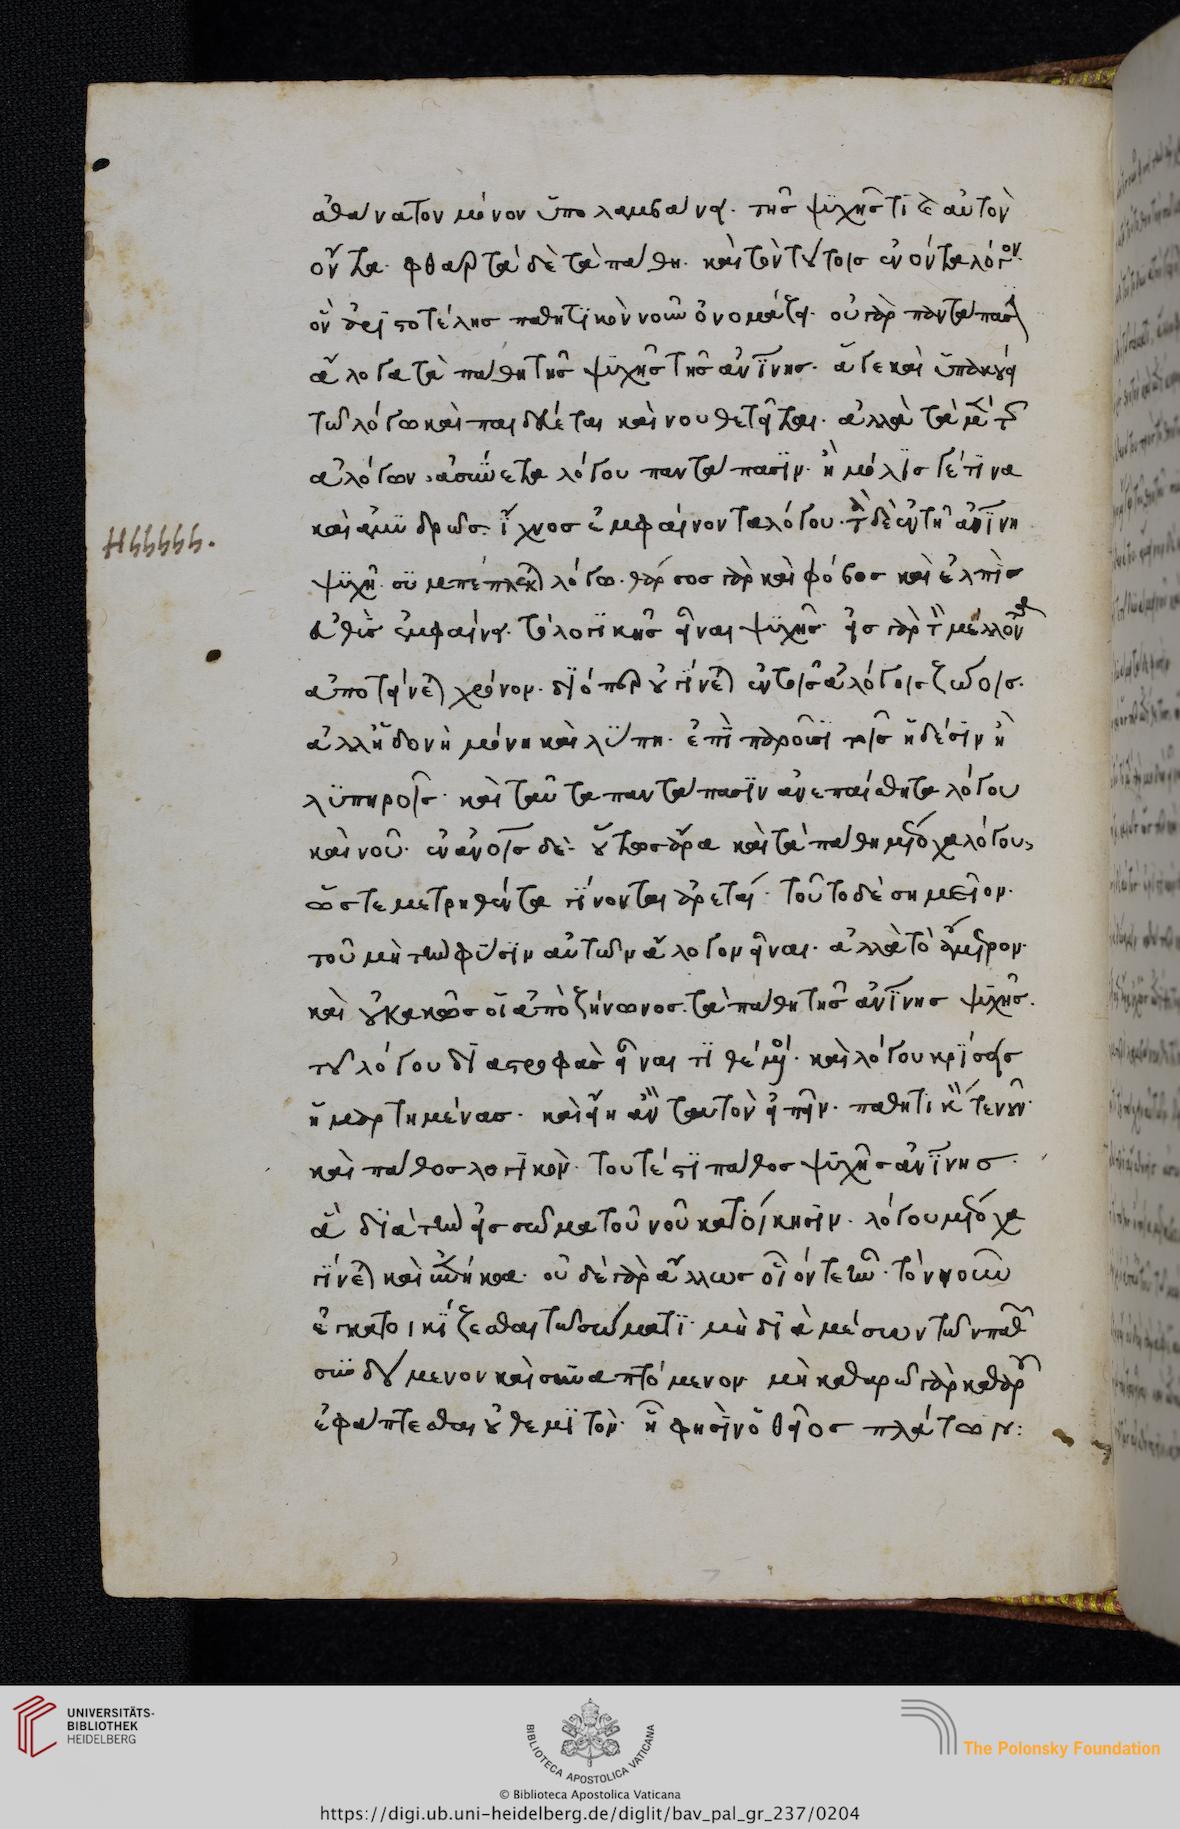 ἀθάνατον μόνον ὑπολαμβάνει· τῆς ψυχῆς τί ἐ αὐτὸν
ὄντα· φθαρτὰ δὲ τὰ πάθη· καὶ τὸν τούτοις ἐνόντα λόγον·
ὃν ἀριστοτέλης παθητικὸν νοῦν ὀνομάζει· οὐ γὰρ πανταπασιν
ἄλογα τὰ πάθη τῆς ψυχῆς τῆς ἀνίνης· ἅ γε καὶ ὑπακούει
τῶ λόγω καὶ παιδεύεται καὶ νουθετεῖται· ἀλλὰ τὰ μὲν τῶν
ἀλόγων, ἀσύνετα λόγου πανταπασιν· ἢ μόλις γέ τινα
καὶ ἀμυδρῶς· ἴχνος ἐμφαίνοντα λόγου· τὰ δὲ ἐν τῆ ἀνίνη
ψυχῆ· συμπέπλεκται λόγω· θάρσος γὰρ καὶ φόβος καὶ ἐλπὶς
εὐθὺς ἐμφαίνει· τὸ λογικῆς εἶναι ψυχῆς· εἰς γὰρ τὸν μέλλοντα
ἀποτείνεται χρόνον· διόπερ οὐ γίνεται ἐν τοῖς ἀλόγοις ζώοις·
ἀλλ' ἡδονὴ μόνη καὶ λύπη· ἐπὶ παροῦσι τοῖς ἡδέσιν ἢ
λυπηροῖς· καὶ ταῦτα πανταπασιν ἀνεπαίσθητα λόγου
καὶ νοῦ· ἐν ἀνοις δὲ· οὕτως ἄρα καὶ τὰ πάθη μετέχει λόγου,
ὥστε μετρηθέντα γίνονται ἀρεταί· τοῦτο δὲ σημεῖον·
τοῦ μὴ τὴν φύσιν αὐτῶν ἄλογον εἶναι· ἀλλὰ τὸ ἄμετρον·
καὶ οὐ κακῶς οἱ ἀπὸ ζήνωνος· τὰ πάθη τῆς ἀνίνης ψυχῆς·
τοῦ λόγου διαστροφὰς εἶναι τιθέμενοι· καὶ λόγου κρίσεις
ἡμαρτημένας· καὶ εἴη ἂν ταυτὸν εἰπεῖν· παθητικόν τε νοῦν·
καὶ πάθος λογικὸν· τουτέστι πάθος ψυχῆς ἀνίνης·
ἃ διὰ τὴν εἰς σῶμα τοῦ νοῦ κατοίκησιν· λόγου μέτοχα
γίνεται καὶ ὑπήκοα· οὐδὲ γὰρ ἄλλως οἷόντε ἦν· τὸν νοῦν
ἐγκατοικίζεσθαι τῶ σώματι· μὴ διὰ μέσων τῶν παθῶν
συνδούμενον καὶ συναπτόμενον· μὴ καθαρῶ γὰρ καθαροῦ
ἐφάπτεσθαι οὐ θεμιτὸν· ἧ φησὶν ὁ θεῖος πλάτων:
UNIVERSITÄTS-
BIBLIOTHEK
HEIDELBERG
BIBLIOTECA APOSTOLICA VATICANA
The Polonsky Foundation
© Biblioteca Apostolica Vaticana
https://digi.ub.uni-heidelberg.de/diglit/bav_pal_gr_237/0204